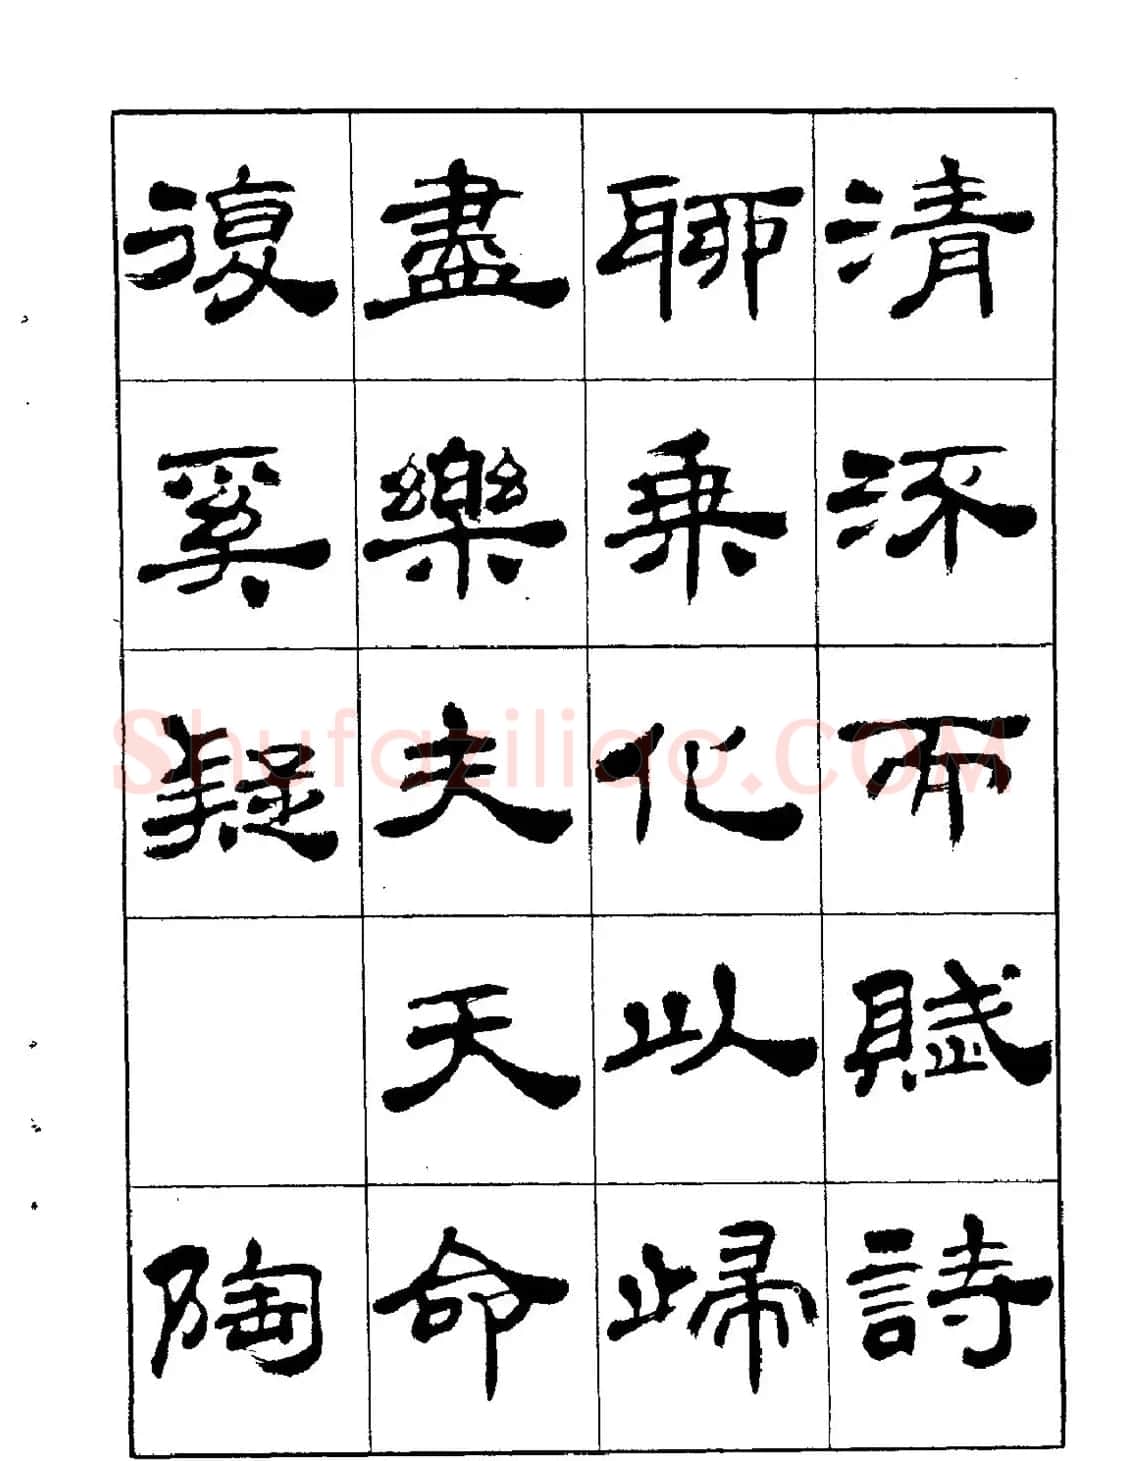 清流而賦詩
聊乘化以歸
盡樂夫天命
復奚疑 陶
Shufaziliao.COM